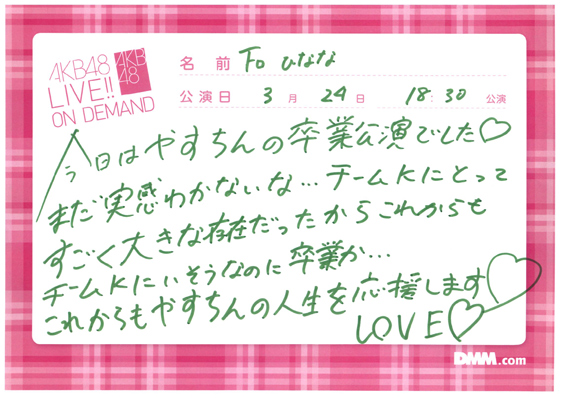 AKB48
LIVE!!
ON DEMAND
AKB
48
名前 Fo ひなな
公演日 3月24日 18:30 公演
今日はやすちんの卒業公演でした♡
まだ実感わかないな…チームKにとって
すごく大きな存在だったからこれからも
チームKにいそうなのに卒業か…
これからもやすちんの人生を応援します♡
LOVE♡
DMM.com